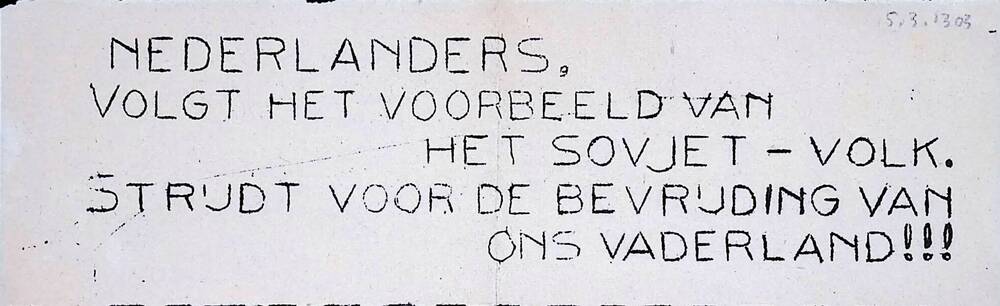 5.3.1303
NEDERLANDERS,
VOLGT HET VOORBEELD VAN
HET SOVJET - VOLK.
STRIJDT VOOR DE BEVRIJDING VAN
ONS VADERLAND!!!